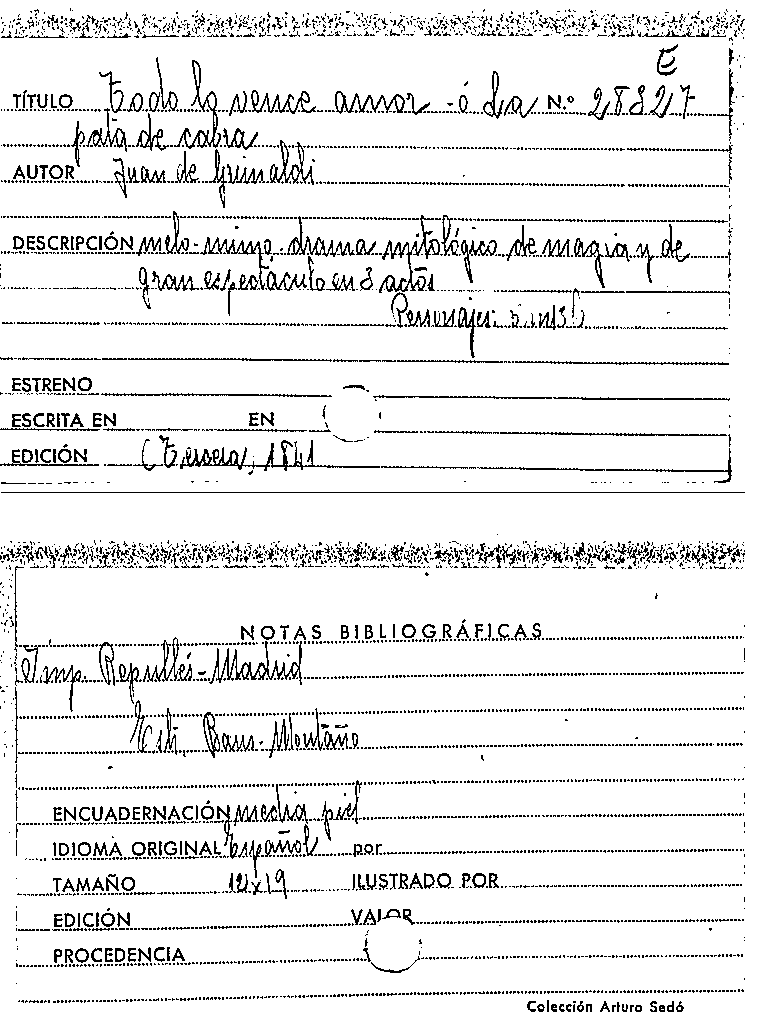 E
TÍTULO Todo lo vence amor - ó La N.º 28827
pata de cabra
AUTOR Juan de Grimaldi
DESCRIPCIÓN melo-mimo-drama mitológico de magia y de
gran espectáculo en 3 actos
Personajes:
ESTRENO
ESCRITA EN EN
EDICIÓN (Tercera, 1841
NOTAS BIBLIOGRÁFICAS
Imp. Repullés - Madrid
Montaño
ENCUADERNACIÓN media piel
IDIOMA ORIGINAL Español por
TAMAÑO 12x19 ILUSTRADO POR
EDICIÓN VALOR
PROCEDENCIA
Colección Arturo Sedó